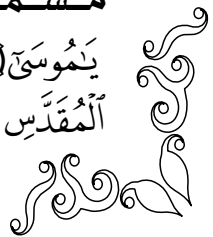 يَٰمُوسَىٰٓ
ٱلْمُقَدَّسِ